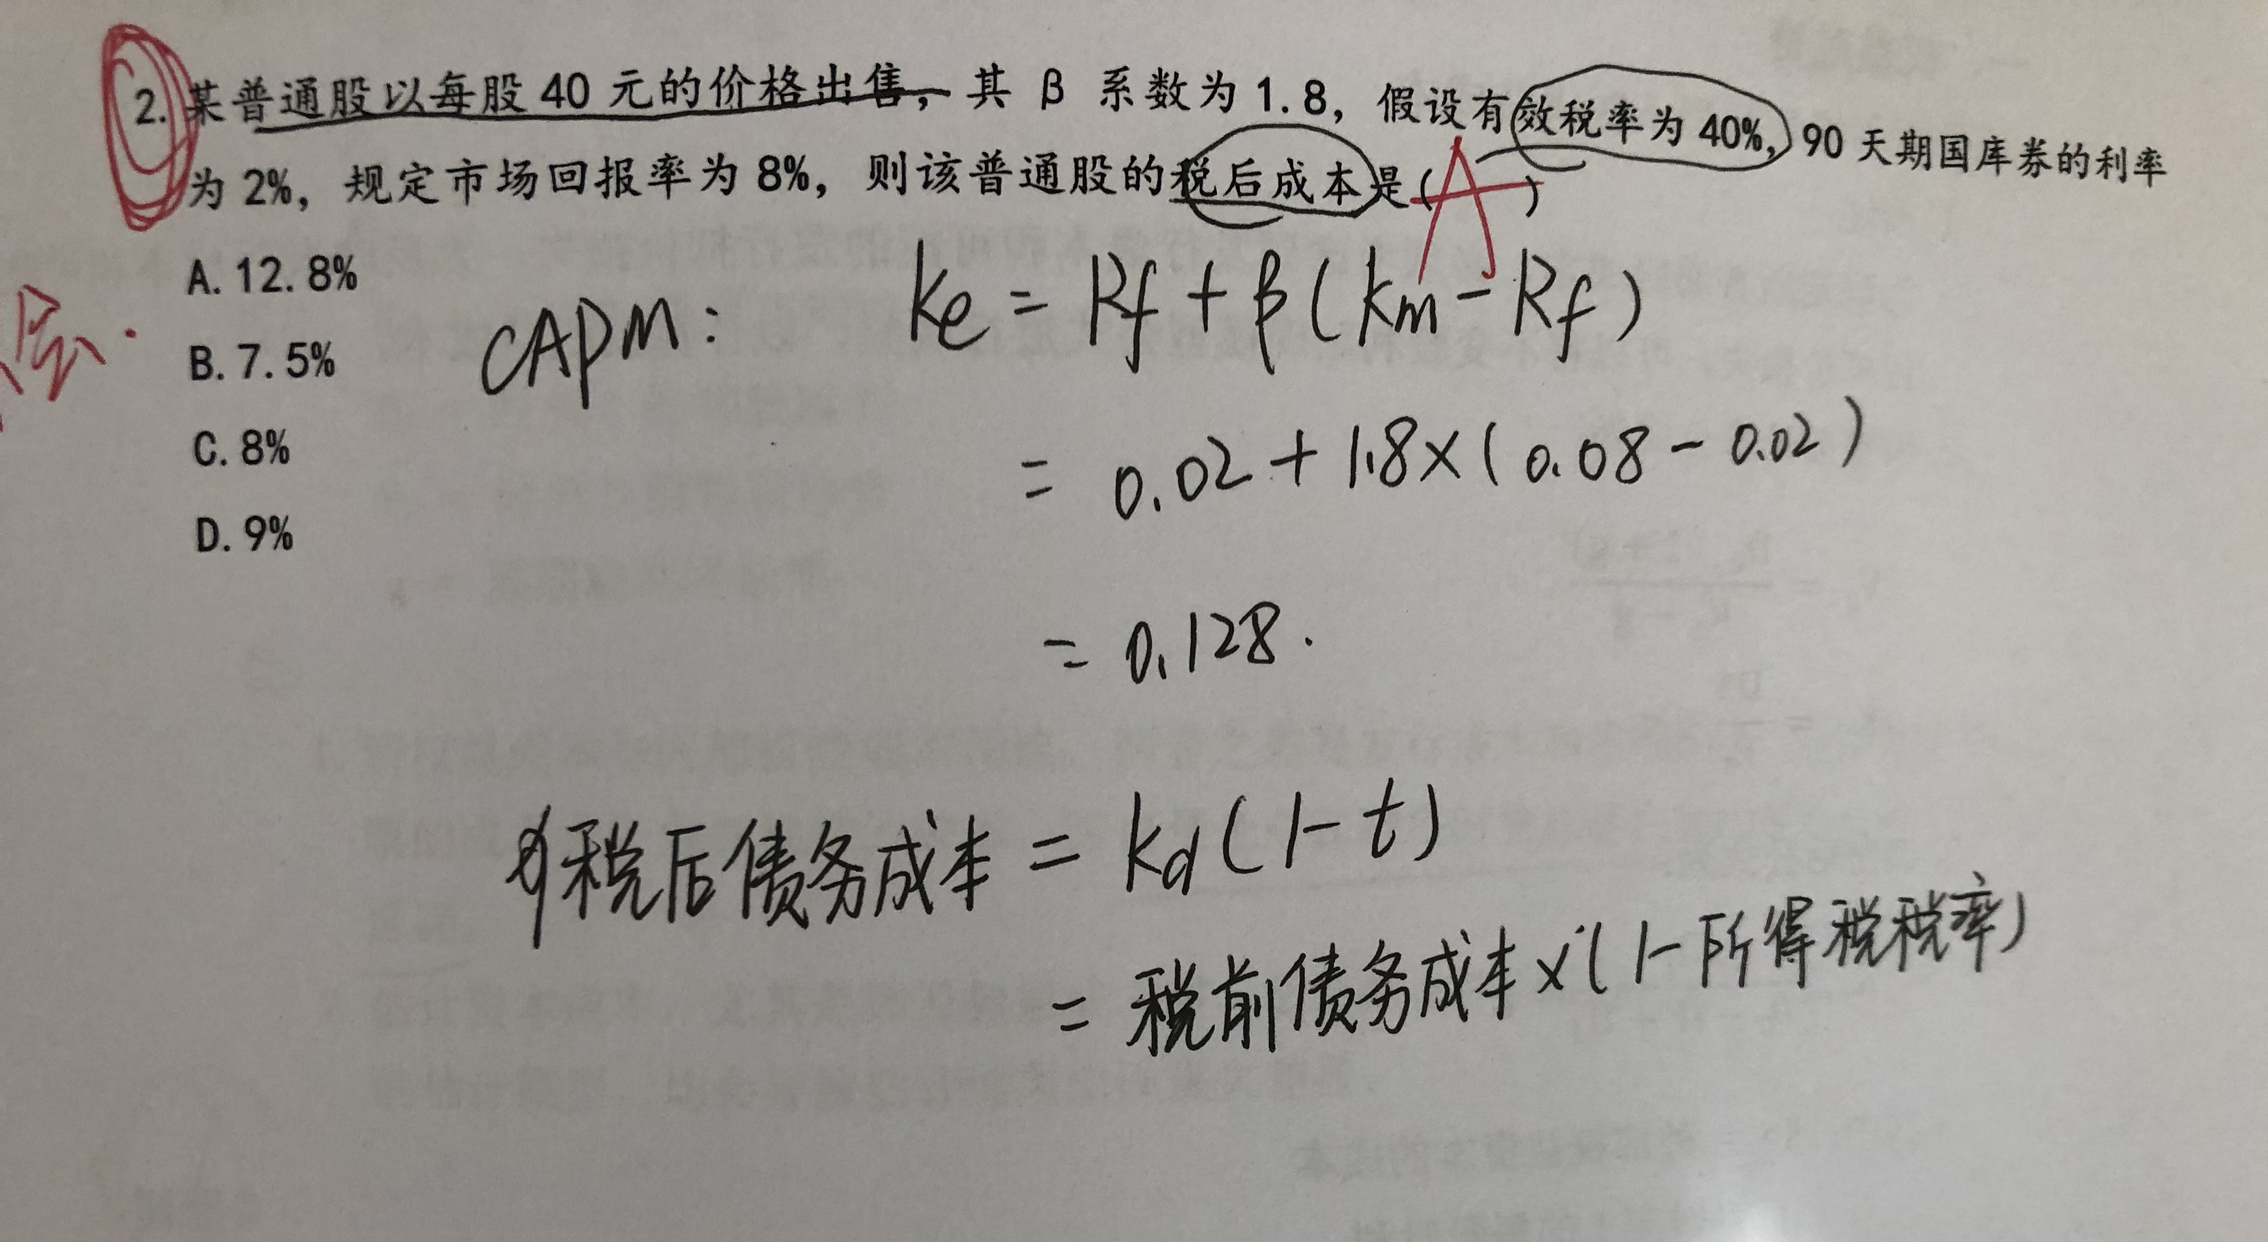 2. 某普通股以每股 40 元的价格出售，其 β 系数为 1.8，假设有效税率为 40%，90 天期国库券的利率
为 2%，规定市场回报率为 8%，则该普通股的税后成本是( A )
A. 12.8%
B. 7.5%
C. 8%
D. 9%
CAPM: Ke = Rf + β(Km - Rf)
= 0.02 + 1.8×(0.08 - 0.02)
= 0.128.
税后债务成本 = Kd(1-t)
= 税前债务成本×(1-所得税税率)